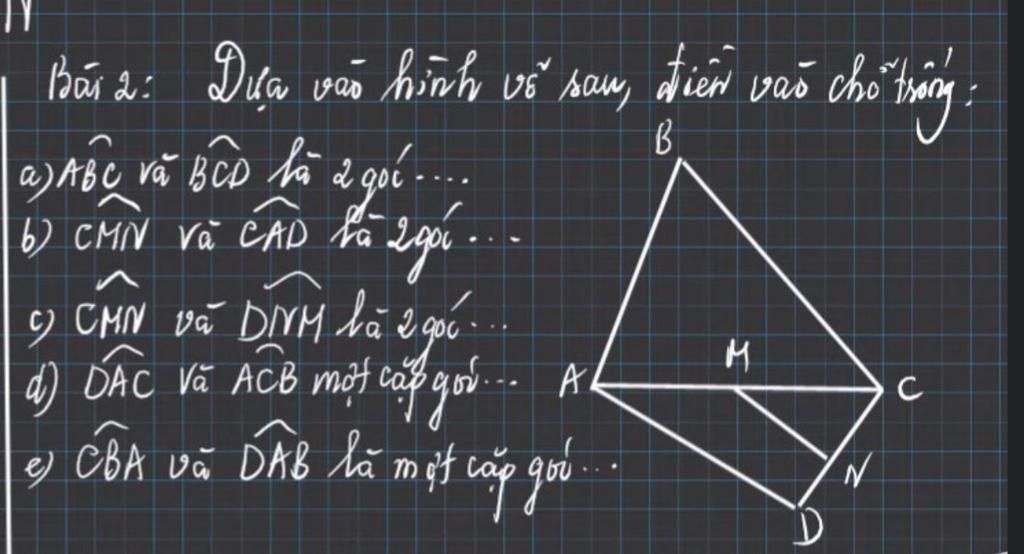 N
Bài 2: Dựa vào hình vẽ sau, điền vào chỗ trống:
a) ABC và BCD là 2 góc....
b) CMN và CAD là 2 góc ...
c) CMN và DNM là 2 góc...
d) DAC và ACB một cặp góc...
e) CBA và DAB là một cặp góc...
B
M
A
C
N
D